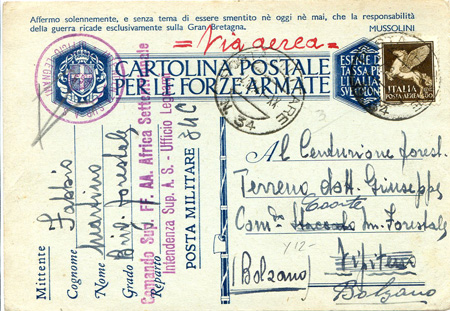 Affermo solennemente, e senza tema di essere smentito nè oggi nè mai, che la responsabilità
della guerra ricade esclusivamente sulla Gran Bretagna.
MUSSOLINI
=Via aerea=
CARTOLINA POSTALE
PER LE FORZE ARMATE
ESENTE DA
TASSA PER
ITALIA
POSTA AEREA
N. 34
Al Centurione forest.
Terreno dott. Giuseppe
Coorte
Com. m. Forestale
Vipiteno
(Bolzano)
Bolzano
Mittente
Cognome
Nome
Grado
Reparto
Forestale
POSTA MILITARE
Comando Sup. FF. AA. Africa Settentrionale
Intendenza Sup. A. S. - Ufficio Legnami